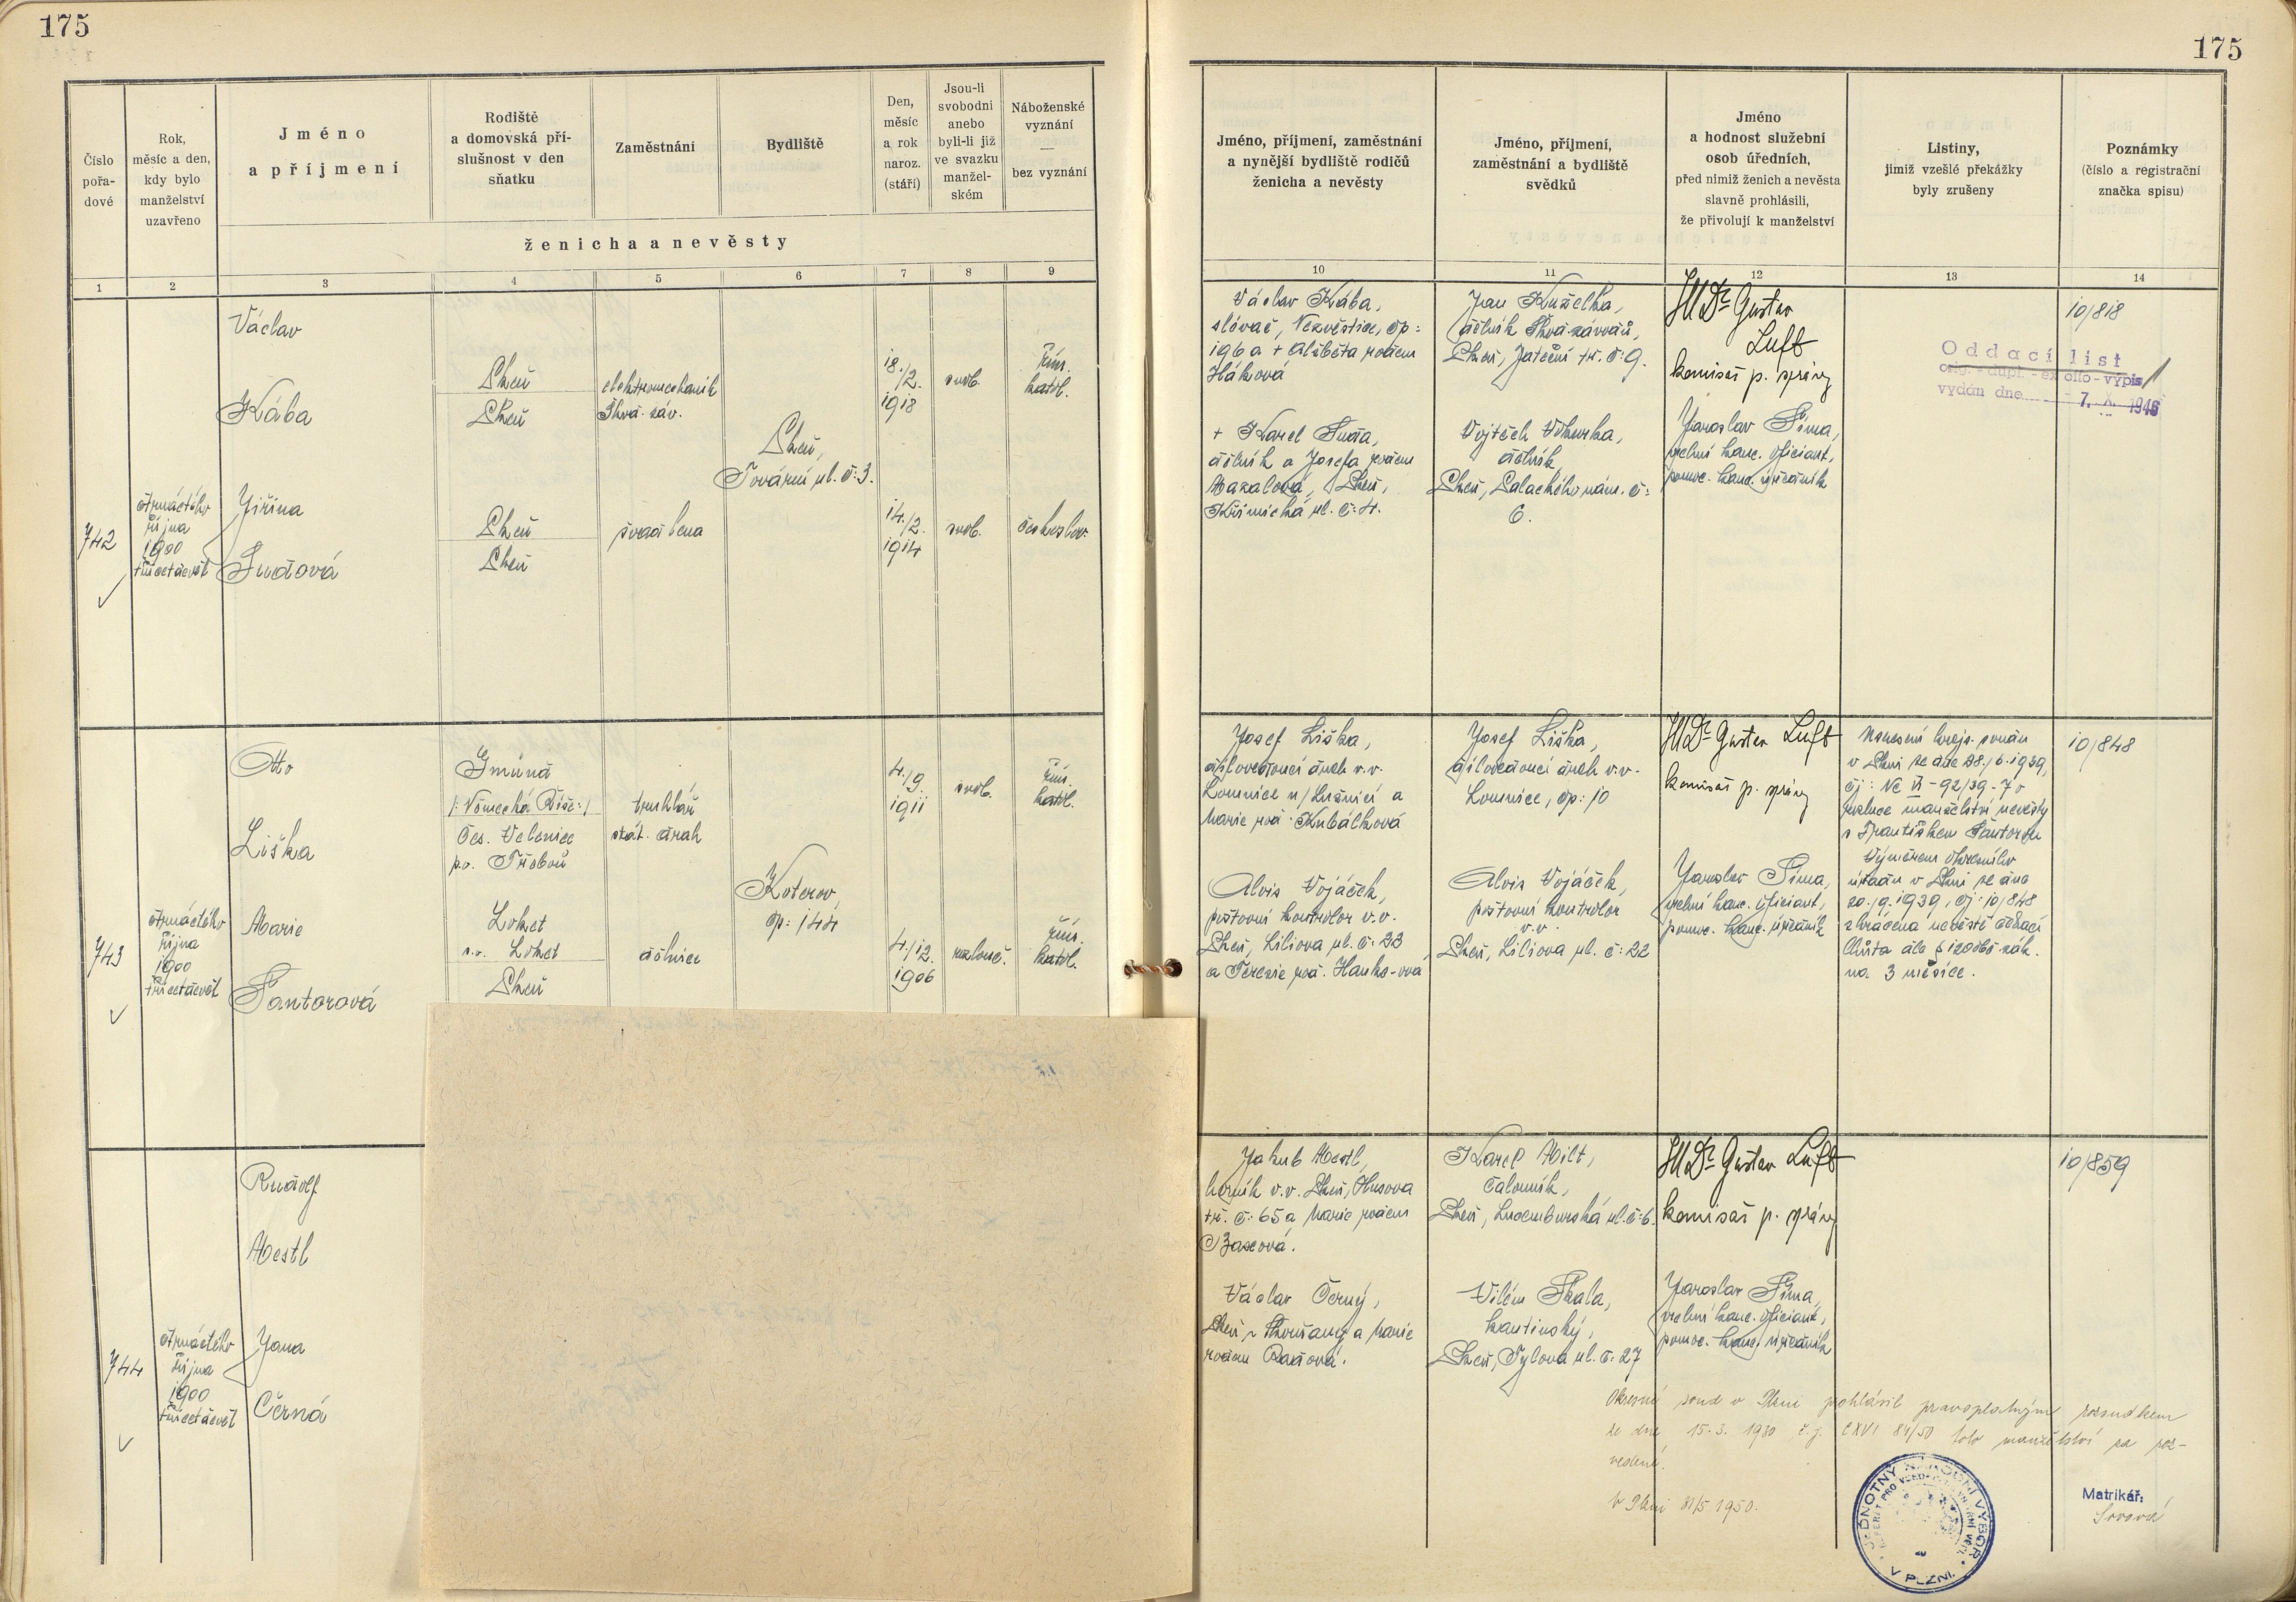 175
175
Číslo
pořa-
dové
Rok,
měsíc a den,
kdy bylo
manželství
uzavřeno
Jméno
a příjmení
Rodiště
a domovská pří-
slušnost v den
sňatku
Zaměstnání
Bydliště
Den,
měsíc
a rok
naroz.
(stáří)
Jsou-li
svobodni
anebo
byli-li již
ve svazku
manžel-
ském
Náboženské
vyznání
—
bez vyznání
ženicha a nevěsty
Jméno, příjmení, zaměstnání
a nynější bydliště rodičů
ženicha a nevěsty
Jméno, příjmení,
zaměstnání a bydliště
svědků
Jméno
a hodnost služební
osob úředních,
před nimiž ženich a nevěsta
slavně prohlásili,
že přivolují k manželství
Listiny,
jimiž vzešlé překážky
byly zrušeny
Poznámky
(číslo a registrační
značka spisu)
1 2 3 4 5 6 7 8 9
10 11 12 13 14
742
čtrnáctého
října
1900
třicetdevět
Václav
Kába
Plzeň
Plzeň
elektromechanik
Škod. záv.
18./2.
1918
svob.
řím.
katol.
Plzeň,
Tovární ul. č: 3.
Jiřina
Sudová
Plzeň
Plzeň
švadlena
14./2.
1914
svob.
českoslov.
Václav Kába,
slévač, Nezvěstice, čp:
196 a + Alžběta rodem
Háková
+ Karel Suda,
dělník a Josefa rodem
Plzeň,
Křimická ul. č: 4.
Jan Kuželka,
dělník Škod. závodů,
Plzeň, Jateční tř. č: 9.
Vojtěch
dělník
Plzeň, Palackého nám. č:
6.
JUDr Gustav
Luft
komisař p. správy
Jaroslav Šíma,
vrchní kanc. oficiant,
pomoc. kanc. úředník
10/818
Oddací list
orig. - dupl. - ex offo - výpis
vydán dne 7. X. 1946
743
čtrnáctého
října
1900
třicetdevět
Otto
Liška
Gmünd
/: Německá Říše :/
Čes. Velenice
p.o. Třeboň
truhlář
stát. drah
4./9.
1911
svob.
řím.
katol.
Koterov,
čp: 144
Marie
Šantorová
Loket
s.o. Loket
Plzeň
dělnice
4./12.
1906
rozlouč.
řím.
katol.
Josef Liška,
dílovedoucí drah v.v.
Lomnice n/Lužnicí a
Marie rod. Kubálková
Alois Vojáček,
poštovní kontrolor v.v.
Plzeň, Liliova ul. č: 22
a Terezie roz. Hanks-ova
Josef Liška,
dílovedoucí drah v.v.
Lomnice, čp: 10
Alois Vojáček,
poštovní kontrolor
v.v.
Plzeň, Liliova ul. č: 22
JUDr Gustav Luft
komisař p. správy
Jaroslav Šíma,
vrchní kanc. oficiant,
pomoc. kanc. úředník
Usnesení krajs. soudu
v Plzni ze dne 28./6.1939,
čj: Nc VI - 92/39 - 7 o
rozluce manželství nevěsty
s Františkem Šantorou
Výměrem Okresního
úřadu v Plzni ze dne
20./9.1939, čj: 10/848
zkrácena nevěstě čekací
lhůta dle § 120 obč. zák.
na 3 měsíce.
10/848
744
čtrnáctého
října
1900
třicetdevět
Rudolf
Mestl
Jana
Černá
Jakub Mestl,
horník v.v. Plzeň, Husova
tř. č: 65 a Marie rodem
Václav Černý,
Plzeň - Skvrňany a Marie
rodem Radová.
Karel Milt,
čalouník,
Plzeň, Lucemburská ul. č: 6.
Vilém Skala,
kantinský,
Plzeň, Tylova ul. č: 27
JUDr Gustav Luft
komisař p. správy
Jaroslav Šíma,
vrchní kanc. oficiant,
pomoc. kanc. úředník
10/859
Okresní soud v Plzni prohlásil pravoplatným rozsudkem
ze dne 15.3. 1950 č.j. CXVI 84/50 toto manželství za roz-
vedené.
V Plzni 31/5 1950.
JEDNOTNÝ NÁRODNÍ VÝBOR
V PLZNI
Matrikář: